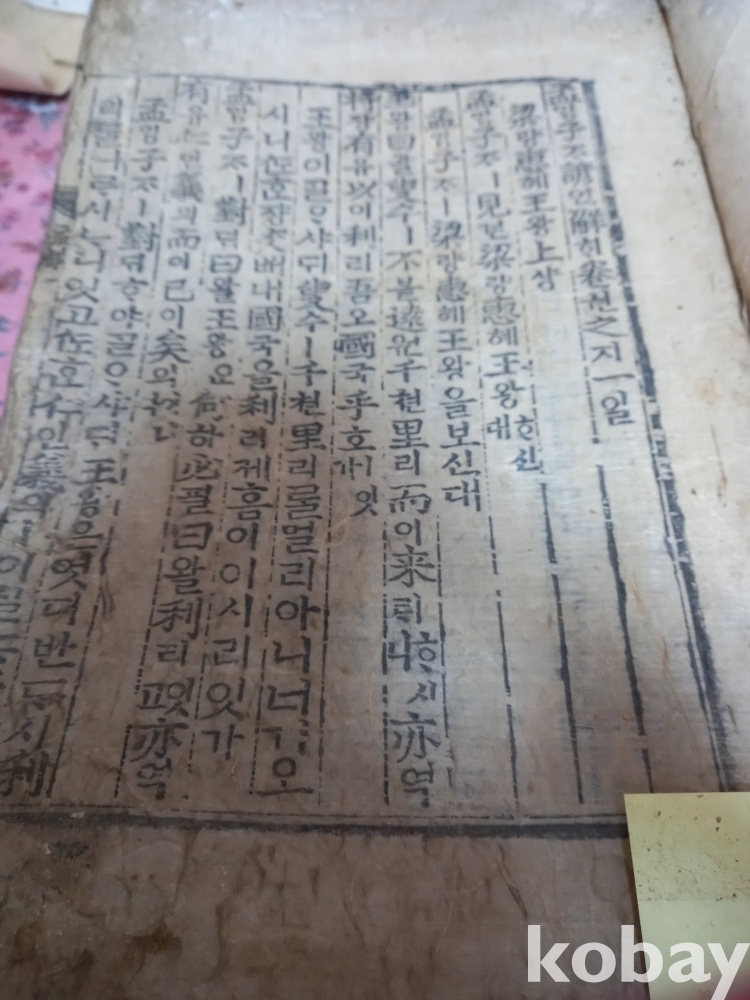 孟ᄆᆡᆼ子ᄌᆞ諺언解ᄒᆡ卷권之지一일
梁량惠혜王왕上샹
孟ᄆᆡᆼ子ᄌᆞㅣ見견梁량惠혜王왕ᄒᆞ신대
孟ᄆᆡᆼ子ᄌᆞㅣ梁량惠혜王왕을보신대
王왕曰왈叟수ㅣ不블遠원千쳔里리而이来ᄅᆡᄒᆞ시니亦역
將쟝有유以이利리吾오國국乎호잇가
王왕이ᄀᆞᆯᄋᆞ샤ᄃᆡ叟수ㅣ千쳔里리ᄅᆞᆯ멀리아니너기오
시니ᄯᅩᄒᆞᆫ쟝ᄎᆞᆺ내國국을利리케홈이이시리잇가
孟ᄆᆡᆼ子ᄌᆞㅣ對ᄃᆡ曰왈王왕은何하必필曰왈利리잇고亦역
有유仁인義의而이已이矣의니이다
孟ᄆᆡᆼ子ᄌᆞㅣ對ᄃᆡᄒᆞ야ᄀᆞᆯᄋᆞ샤ᄃᆡ王왕은엇디반ᄃᆞ시利
리ᄅᆞᆯ니ᄅᆞ시ᄂᆞ니잇고ᄯᅩᄒᆞᆫ仁인義의이실
kobay